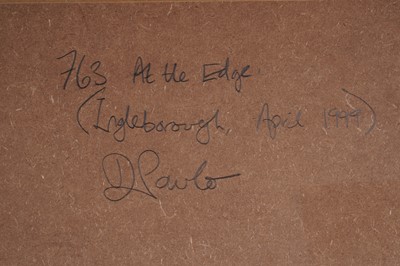 763 At the Edge.
(Ingleborough, April 1999)